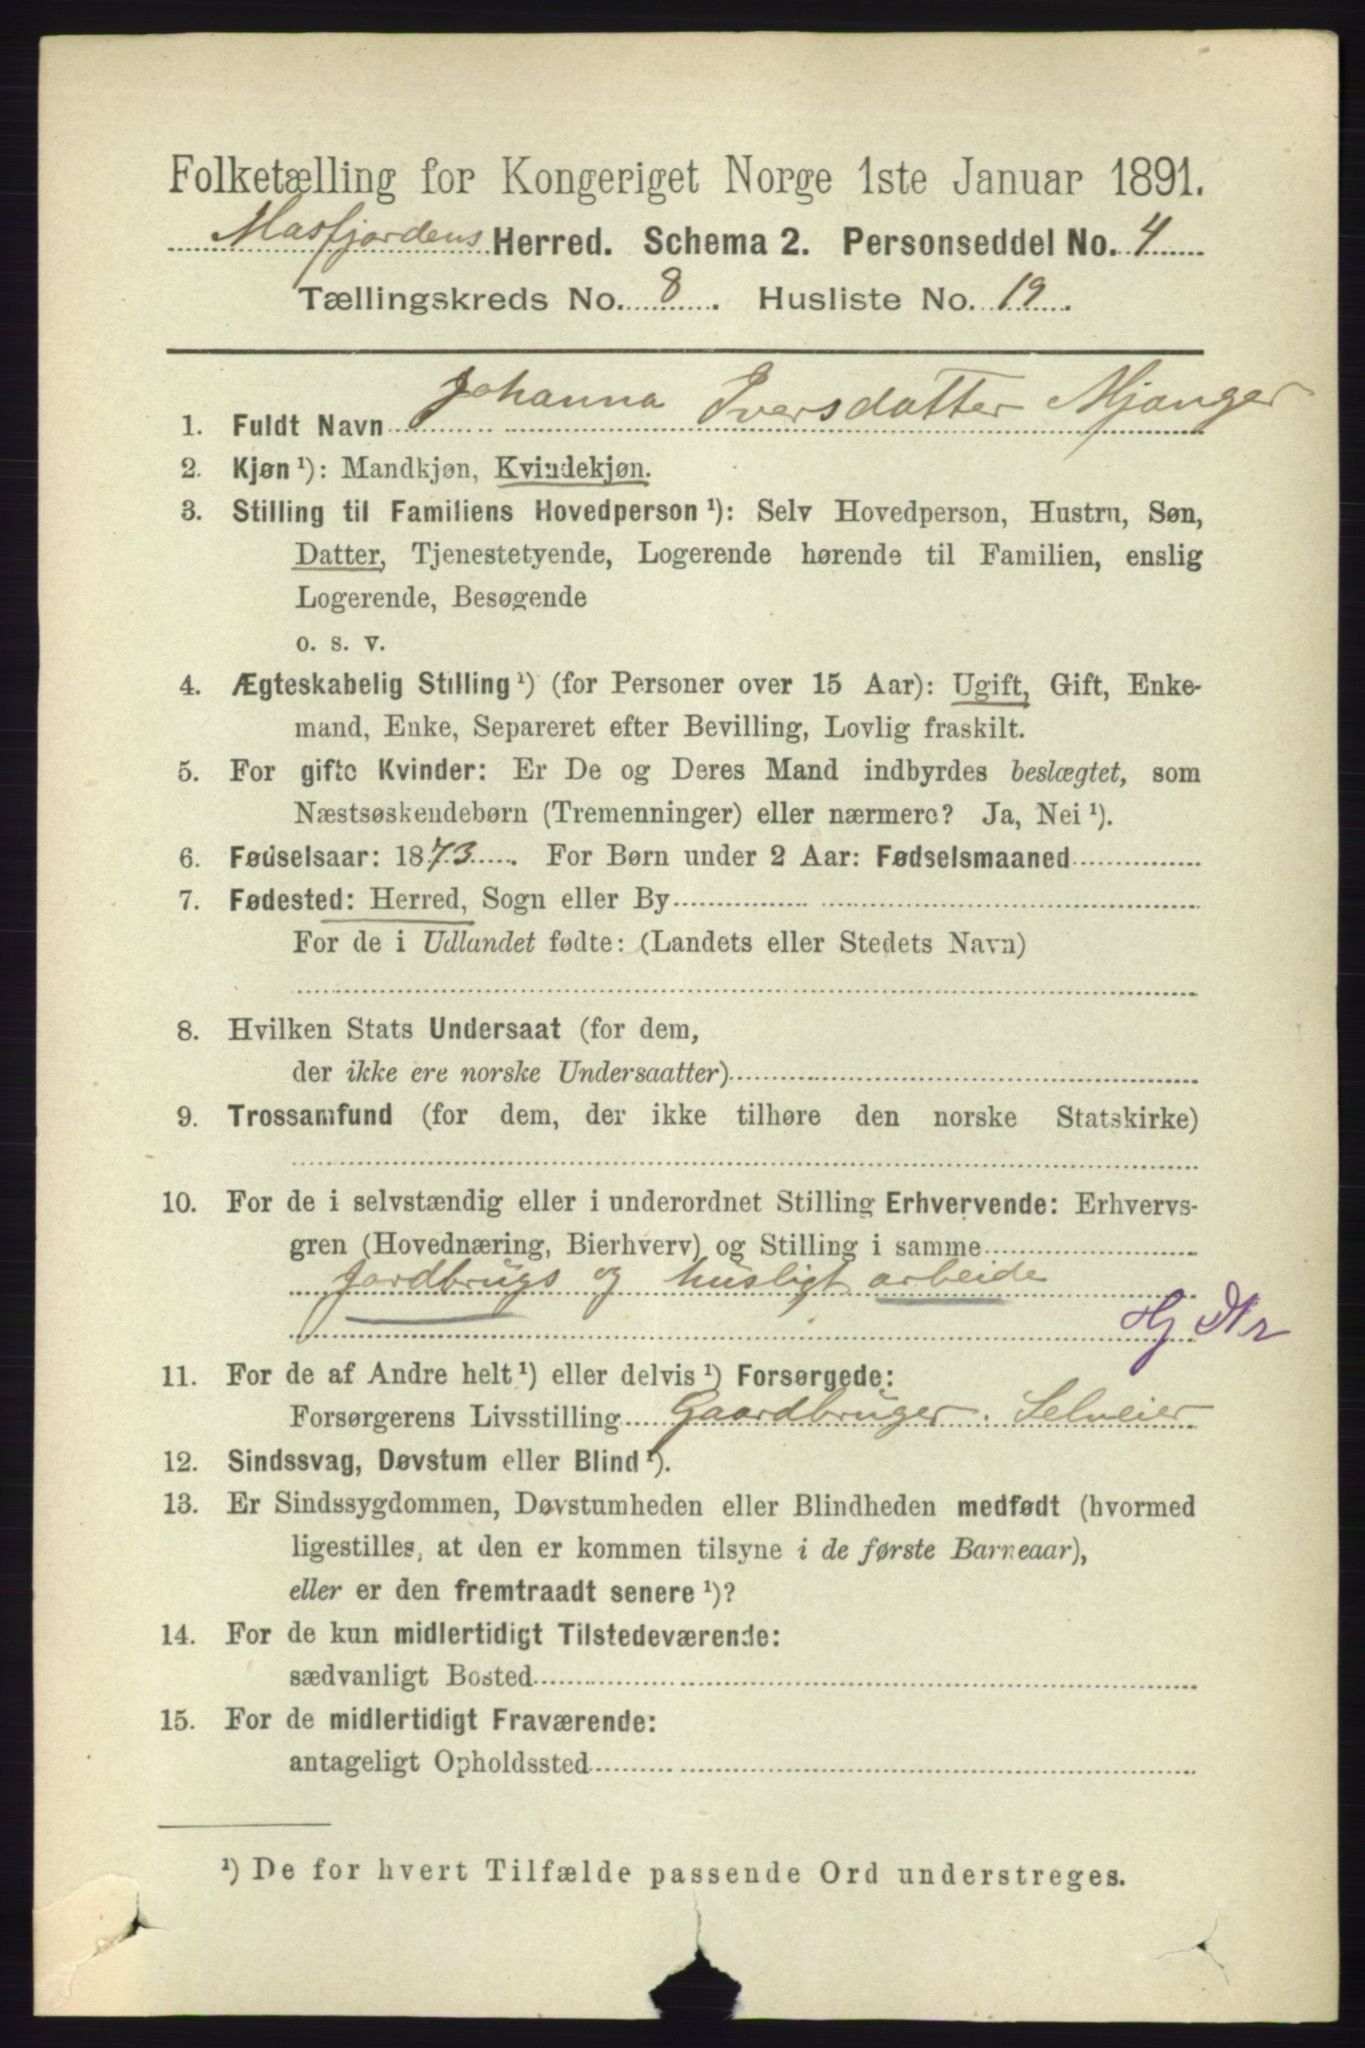 Folketælling for Kongeriget Norge 1ste Januar 1891.
Masfjordens Herred. Schema 2. Personseddel No. 4
Tællingskreds No. 8. Husliste No. 19.
1. Fuldt Navn Johanna Iversdatter Mjanger
2. Kjøn ¹): Mandkjøn, Kvindekjøn.
3. Stilling til Familiens Hovedperson ¹): Selv Hovedperson, Hustru, Søn,
Datter, Tjenestetyende, Logerende hørende til Familien, enslig
Logerende, Besøgende
o. s. v.
4. Ægteskabelig Stilling ¹) (for Personer over 15 Aar): Ugift, Gift, Enke-
mand, Enke, Separeret efter Bevilling, Lovlig fraskilt.
5. For gifte Kvinder: Er De og Deres Mand indbyrdes beslægtet, som
Næstsøskendebørn (Tremenninger) eller nærmere? Ja, Nei ¹).
6. Fødselsaar: 1873. For Børn under 2 Aar: Fødselsmaaned
7. Fødested: Herred, Sogn eller By
For de i Udlandet fødte: (Landets eller Stedets Navn)
8. Hvilken Stats Undersaat (for dem,
der ikke ere norske Undersaatter)
9. Trossamfund (for dem, der ikke tilhøre den norske Statskirke)
10. For de i selvstændig eller i underordnet Stilling Erhvervende: Erhvervs-
gren (Hovednæring, Bierhverv) og Stilling i samme
Jordbrugs og husligt arbeide
Hj Dr
11. For de af Andre helt ¹) eller delvis ¹) Forsørgede:
Forsørgerens Livsstilling Gaardbruger. Selveier
12. Sindssvag, Døvstum eller Blind ¹).
13. Er Sindssygdommen, Døvstumheden eller Blindheden medfødt (hvormed
ligestilles, at den er kommen tilsyne i de første Barneaar),
eller er den fremtraadt senere ¹)?
14. For de kun midlertidigt Tilstedeværende:
sædvanligt Bosted
15. For de midlertidigt Fraværende:
antageligt Opholdssted
¹) De for hvert Tilfælde passende Ord understreges.